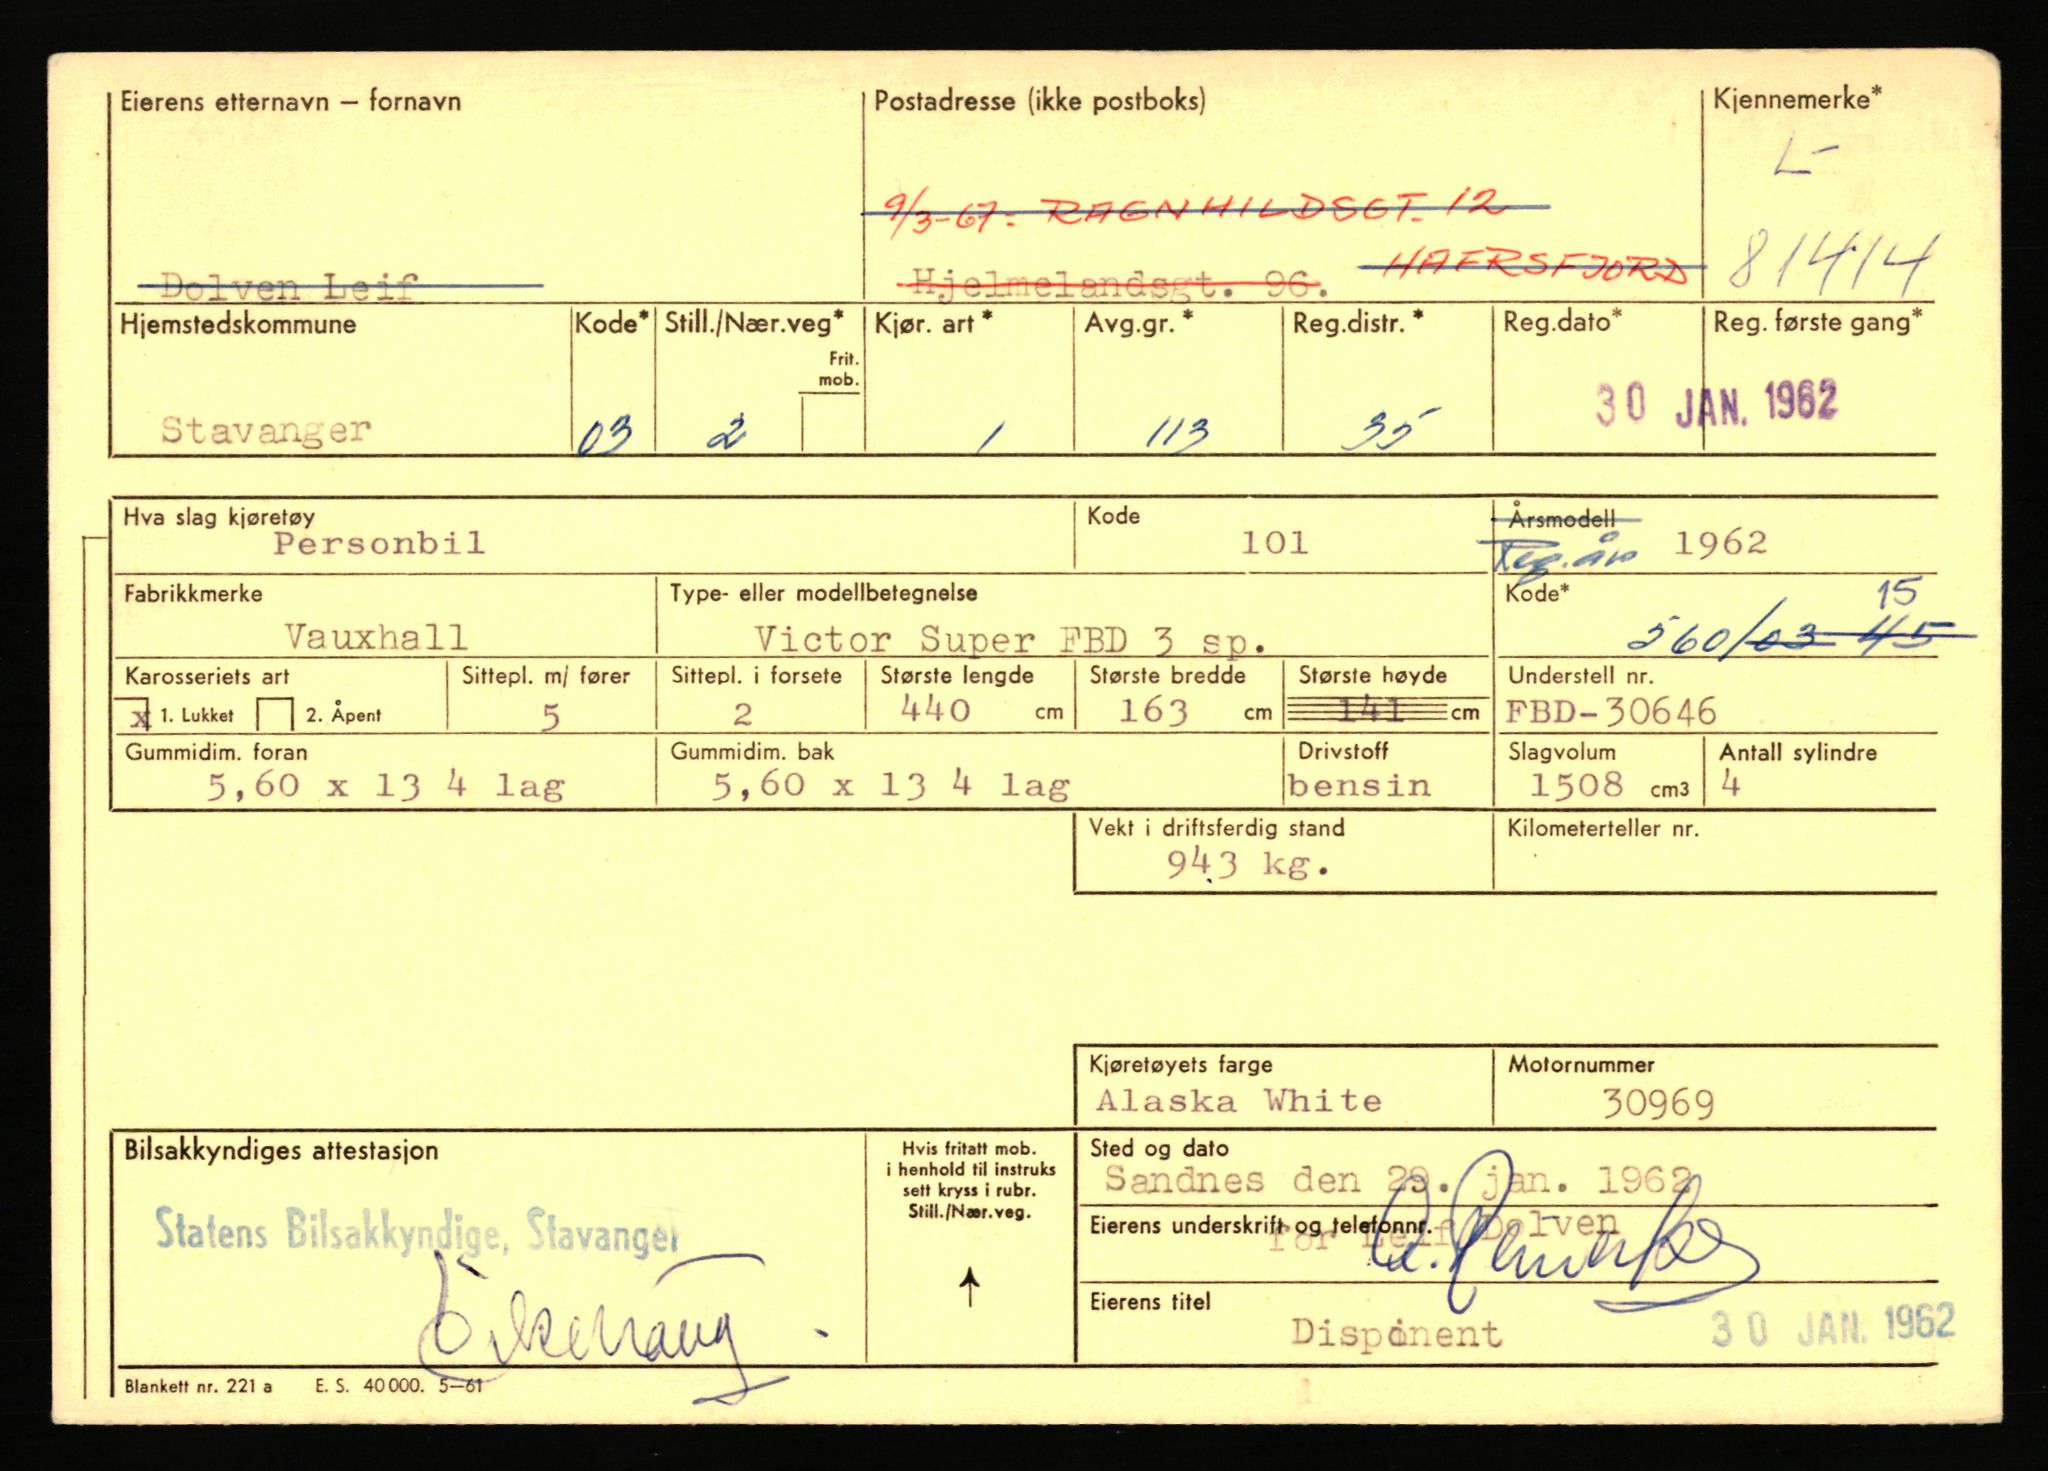 Eierens etternavn – fornavn Postadresse (ikke postboks) Kjennemerke*
L-
9/3-67: RAGNHILDSGT. 12
HAFRSFJORD 81414
Dolven Leif Hjelmelandsgt. 96.
Hjemstedskommune Kode* Still./Nær.veg* Kjør. art * Avg.gr. * Reg.distr. * Reg.dato* Reg. første gang*
Frit.
mob.
30 JAN. 1962
Stavanger 03 2 1 113 35
Hva slag kjøretøy Kode Årsmodell
Personbil 101 Reg.år 1962
Fabrikkmerke Type- eller modellbetegnelse Kode* 15
Vauxhall Victor Super FBD 3 sp. 560/03 45
Karosseriets art Sittepl. m/ fører Sittepl. i forsete Største lengde Største bredde Største høyde Understell nr.
x 1. Lukket 2. Åpent 5 2 440 cm 163 cm 141 cm FBD-30646
Gummidim. foran Gummidim. bak Drivstoff Slagvolum Antall sylindre
5,60 x 13 4 lag 5,60 x 13 4 lag bensin 1508 cm3 4
Vekt i driftsferdig stand Kilometerteller nr.
943 kg.
Kjøretøyets farge Motornummer
Alaska White 30969
Bilsakkyndiges attestasjon Hvis fritatt mob. Sted og dato
i henhold til instruks
sett kryss i rubr.
Still./Nær.veg.
Sandnes den 29. jan. 1962
Statens Bilsakkyndige, Stavanger Eierens underskrift og telefonnr.
for Leif Dolven
Eierens titel
Disponent 30 JAN. 1962
Blankett nr. 221 a E. S. 40 000. 5–61